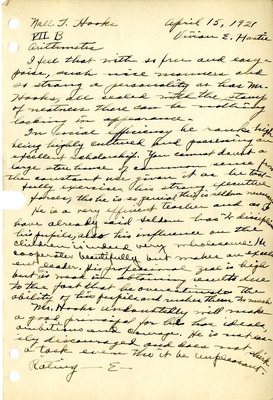 Nall T. Hooks April 15, 1921
VII B Vivian E. Hastie
Arithmetic
I feel that with so free and easy
poise, such nice manners and
so strong a personality as has Mr.
Hooks, all sealed with the stamp
of neatness there can be nothing
lacking in appearance.
In social efficiency he ranks high
being highly cultured and possessing an
excellent scholarship. You cannot doubt a
large storehouse of common sense for
the constant use given it as he tact-
fully exercises his strong executive
forces, tho he is so genial this is seldom
He is a very efficient teacher and as I
have already said seldom has to discipline
his pupils, also his influence on the
children is indeed very wholesome. He
cooperates beautifully but makes an excell-
ent leader. His professional zeal is high
but is good in obtaining results due
to the fact that he overestimates the
ability of his pupils and makes them do much
Mr. Hooks undoubtedly will make
a good principal for he has ideals,
ambitions and courage. He is not ea-
sily discouraged and does not shirk
a task even tho it be unpleasant.
Rating - E -